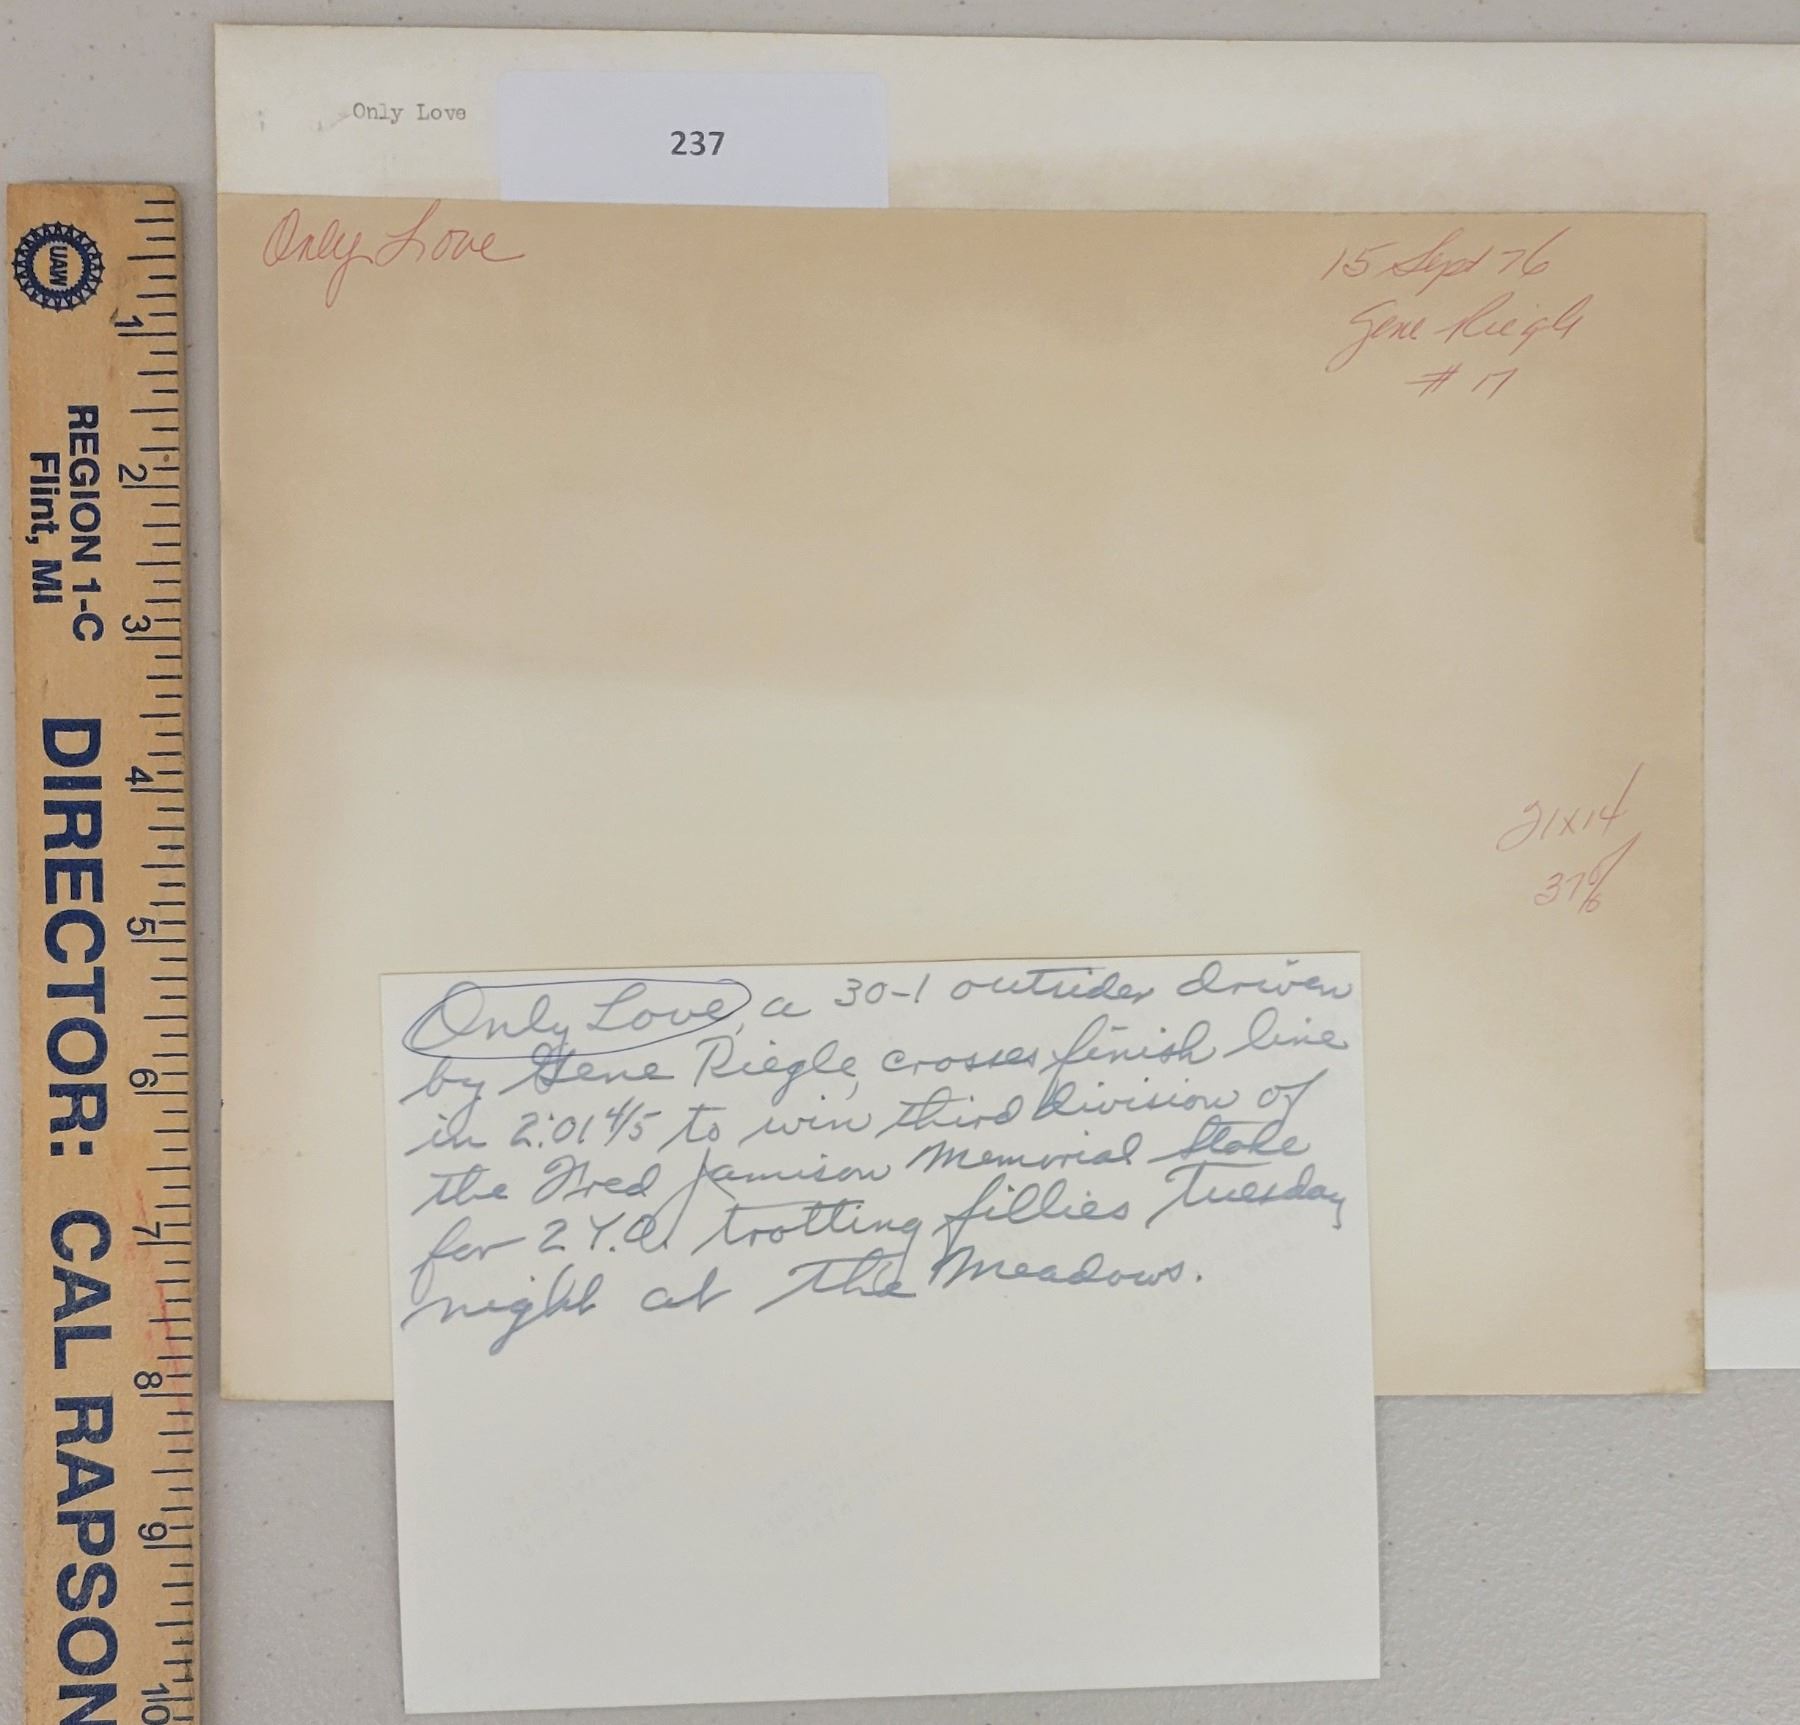 Only Love
237
Only Love
15 Sept 76
Gene Riegle
# 17
21x14
37%
Only Love, a 30-1 outsider driven
by Gene Riegle, crosses finish line
in 2:01 4/5 to win third division of
the Fred Jamison Memorial Stake
for 2 Y.O. trotting fillies Tuesday
night at the Meadows.
UAW
REGION 1-C
Flint, MI
DIRECTOR: CAL RAPSON
1
2
3
4
5
6
7
8
9
10